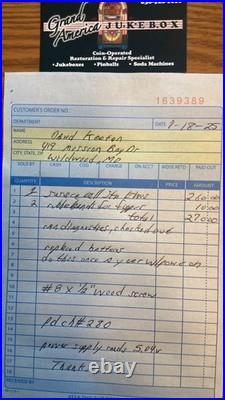 Grand
America
JUKEBOX
Coin-Operated
Restoration & Repair Specialist
• Jukeboxes • Pinballs • Soda Machines
1639389
CUSTOMER'S ORDER NO.
DEPARTMENT
DATE 9-18-25
NAME David Keeton
ADDRESS 419 Mission Bay Dr
CITY, STATE, ZIP Wildwood, MO
SOLD BY CASH COD CHARGE ON ACCT MDSE RETD PAID OUT
QUANTITY DESCRIPTION PRICE AMOUNT
1 1 service call to Elvis 260.00
2 2 rubber bands for 10.00
3 total 270.00
4 ran diagnostics, checked out
5
6 replaced battery
7 do this once a year w/power on
8
9 #8 x ½" wood screw
11 pd ch # 280
13 power supply reads 5.04v
15 Thank
RECEIVED BY